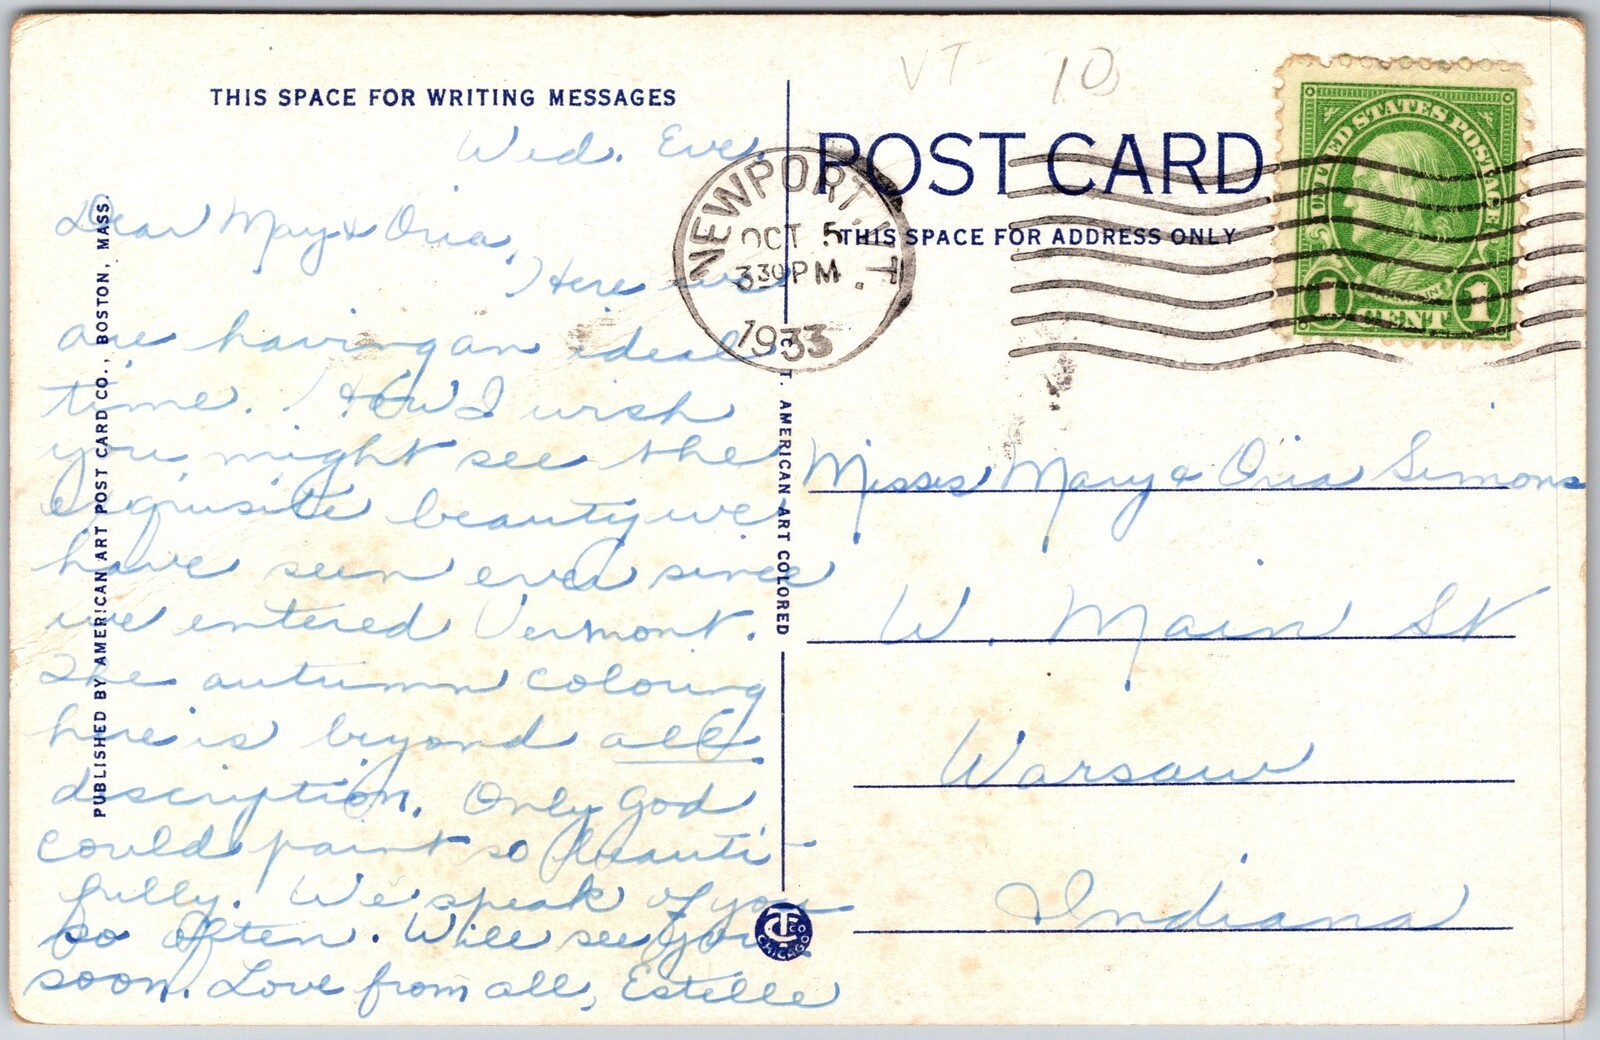 VT- 10
THIS SPACE FOR WRITING MESSAGES
POST CARD
THIS SPACE FOR ADDRESS ONLY
NEWPORT, VT.
OCT 5
330PM
1933
UNITED STATES POSTAGE
1 CENT 1
Wed. Eve.
Dear Mary & Oria,
Here we
are having an ideal
time. How I wish
you might see the
exquisite beauty we
have seen ever since
we entered Vermont.
The autumn coloring
here is beyond all
discription. Only God
could paint so beauti-
fully. We speak of you
so often. Will see you
soon. Love from all, Estelle
Misses Mary & Oria Simons
W. Main St
Warsaw
Indiana
PUBLISHED BY AMERICAN ART POST CARD CO., BOSTON, MASS.
C. T. AMERICAN ART COLORED
CT CO
CHICAGO